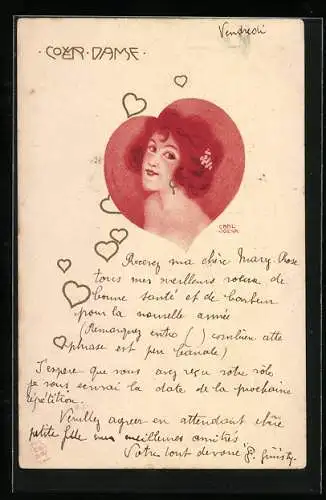 Vendredi
COEUR-DAME
CARL JOZSA
Recevez ma chère Mary-Rose
tous mes meilleurs voeux de
bonne santé et de bonheur
pour la nouvelle année
(Remarquez entre ( ) combien cette
phrase est peu banale)
J'espère que vous avez reçu votre rôle
je vous enverrai la date de la prochaine
répétition.
Veuillez agréer en attendant chère
petite fille mes meilleures amitiés
Votre tout dévoué